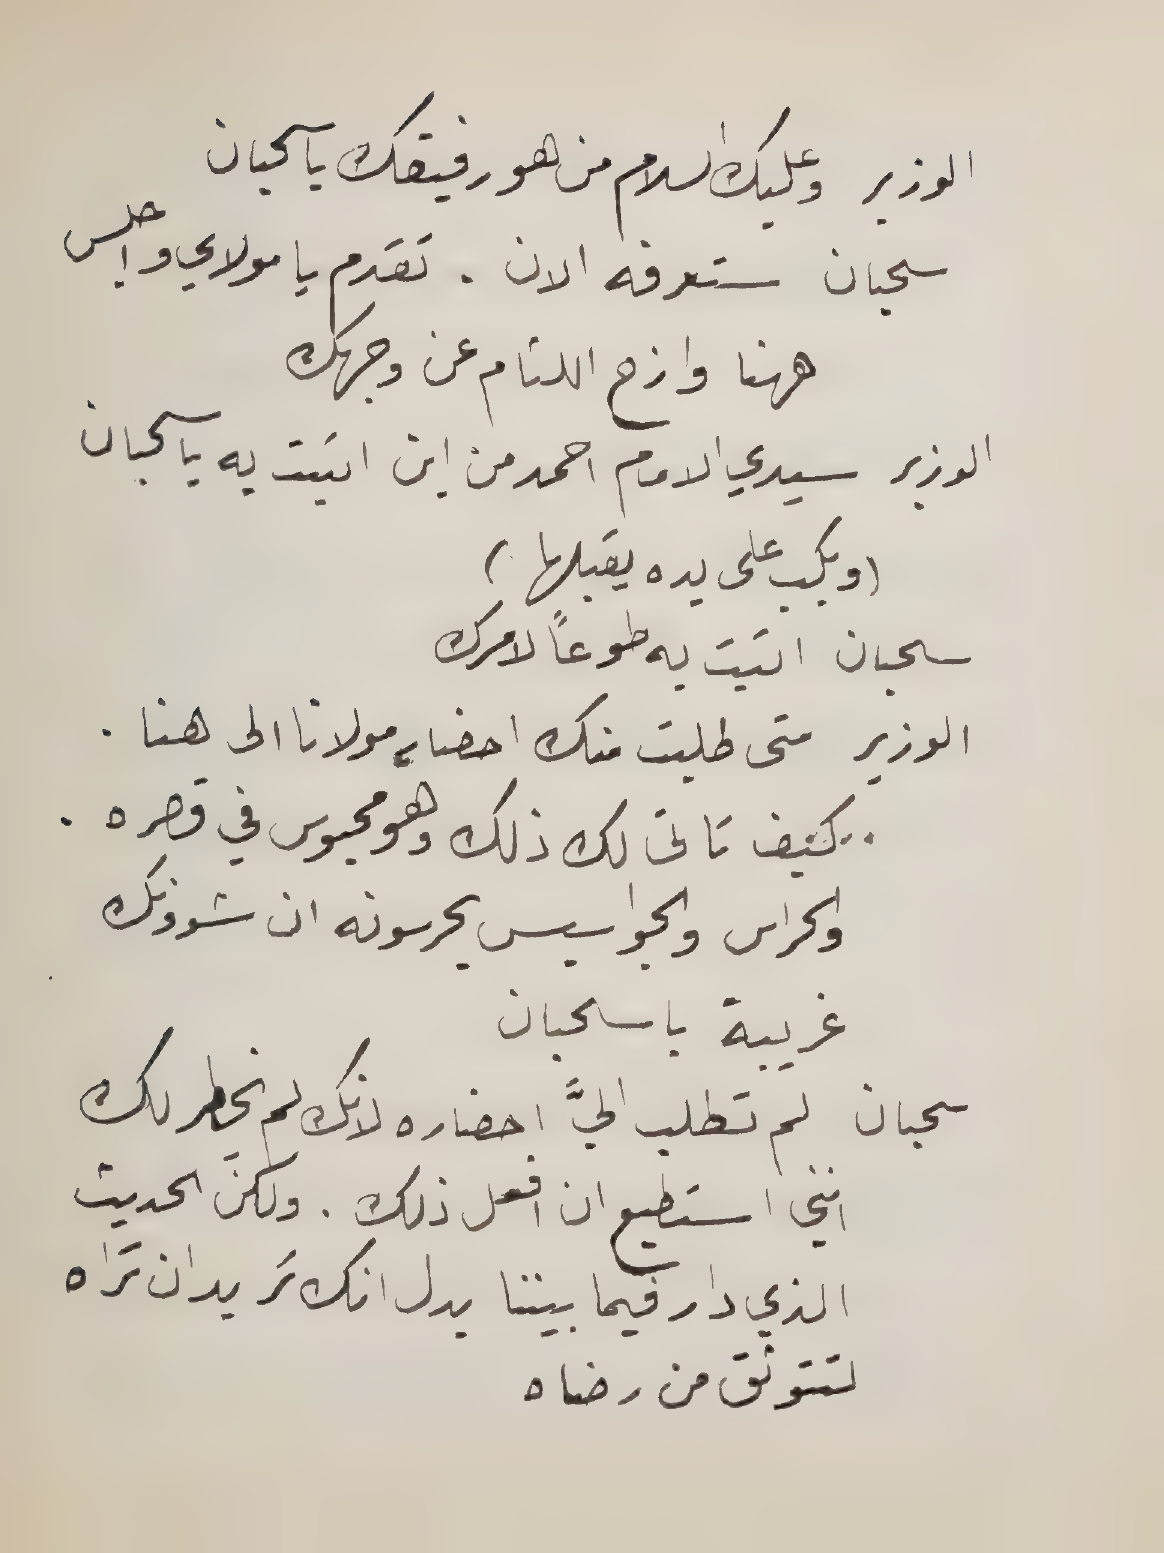 الوزير وعليك السلام من هو رفيقك يا سحبان
سحبان ستعرفه الان . تقدم يا مولاي واجلس
ههنا وازح اللثام عن وجهك
الوزير سيدي الامام احمد من اين اتيت به يا سحبان
(ويكب على يده يقبلها)
سحبان اتيت به طوعاً لامرك
الوزير متى طلبت منك احضار مولانا الى هنا .
.. كيف تاتى لك ذلك وهو محبوس في قصره .
والحراس والجواسيس يحرسونه ان شوونك
غريبة يا سحبان
سحبان لم تطلب اليَّ احضاره لانك لم يخطر لك
انني استطيع ان افعل ذلك . ولكنَّ الحديث
الذي دار فيما بيننا يدل انك تريد ان تراه
لتتوثق من رضاه